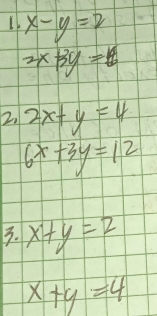 1. x - y = 2
2x + 3y =
2. 2x + y = 4
6x + 3y = 12
3. x + y = 2
x + y = 4